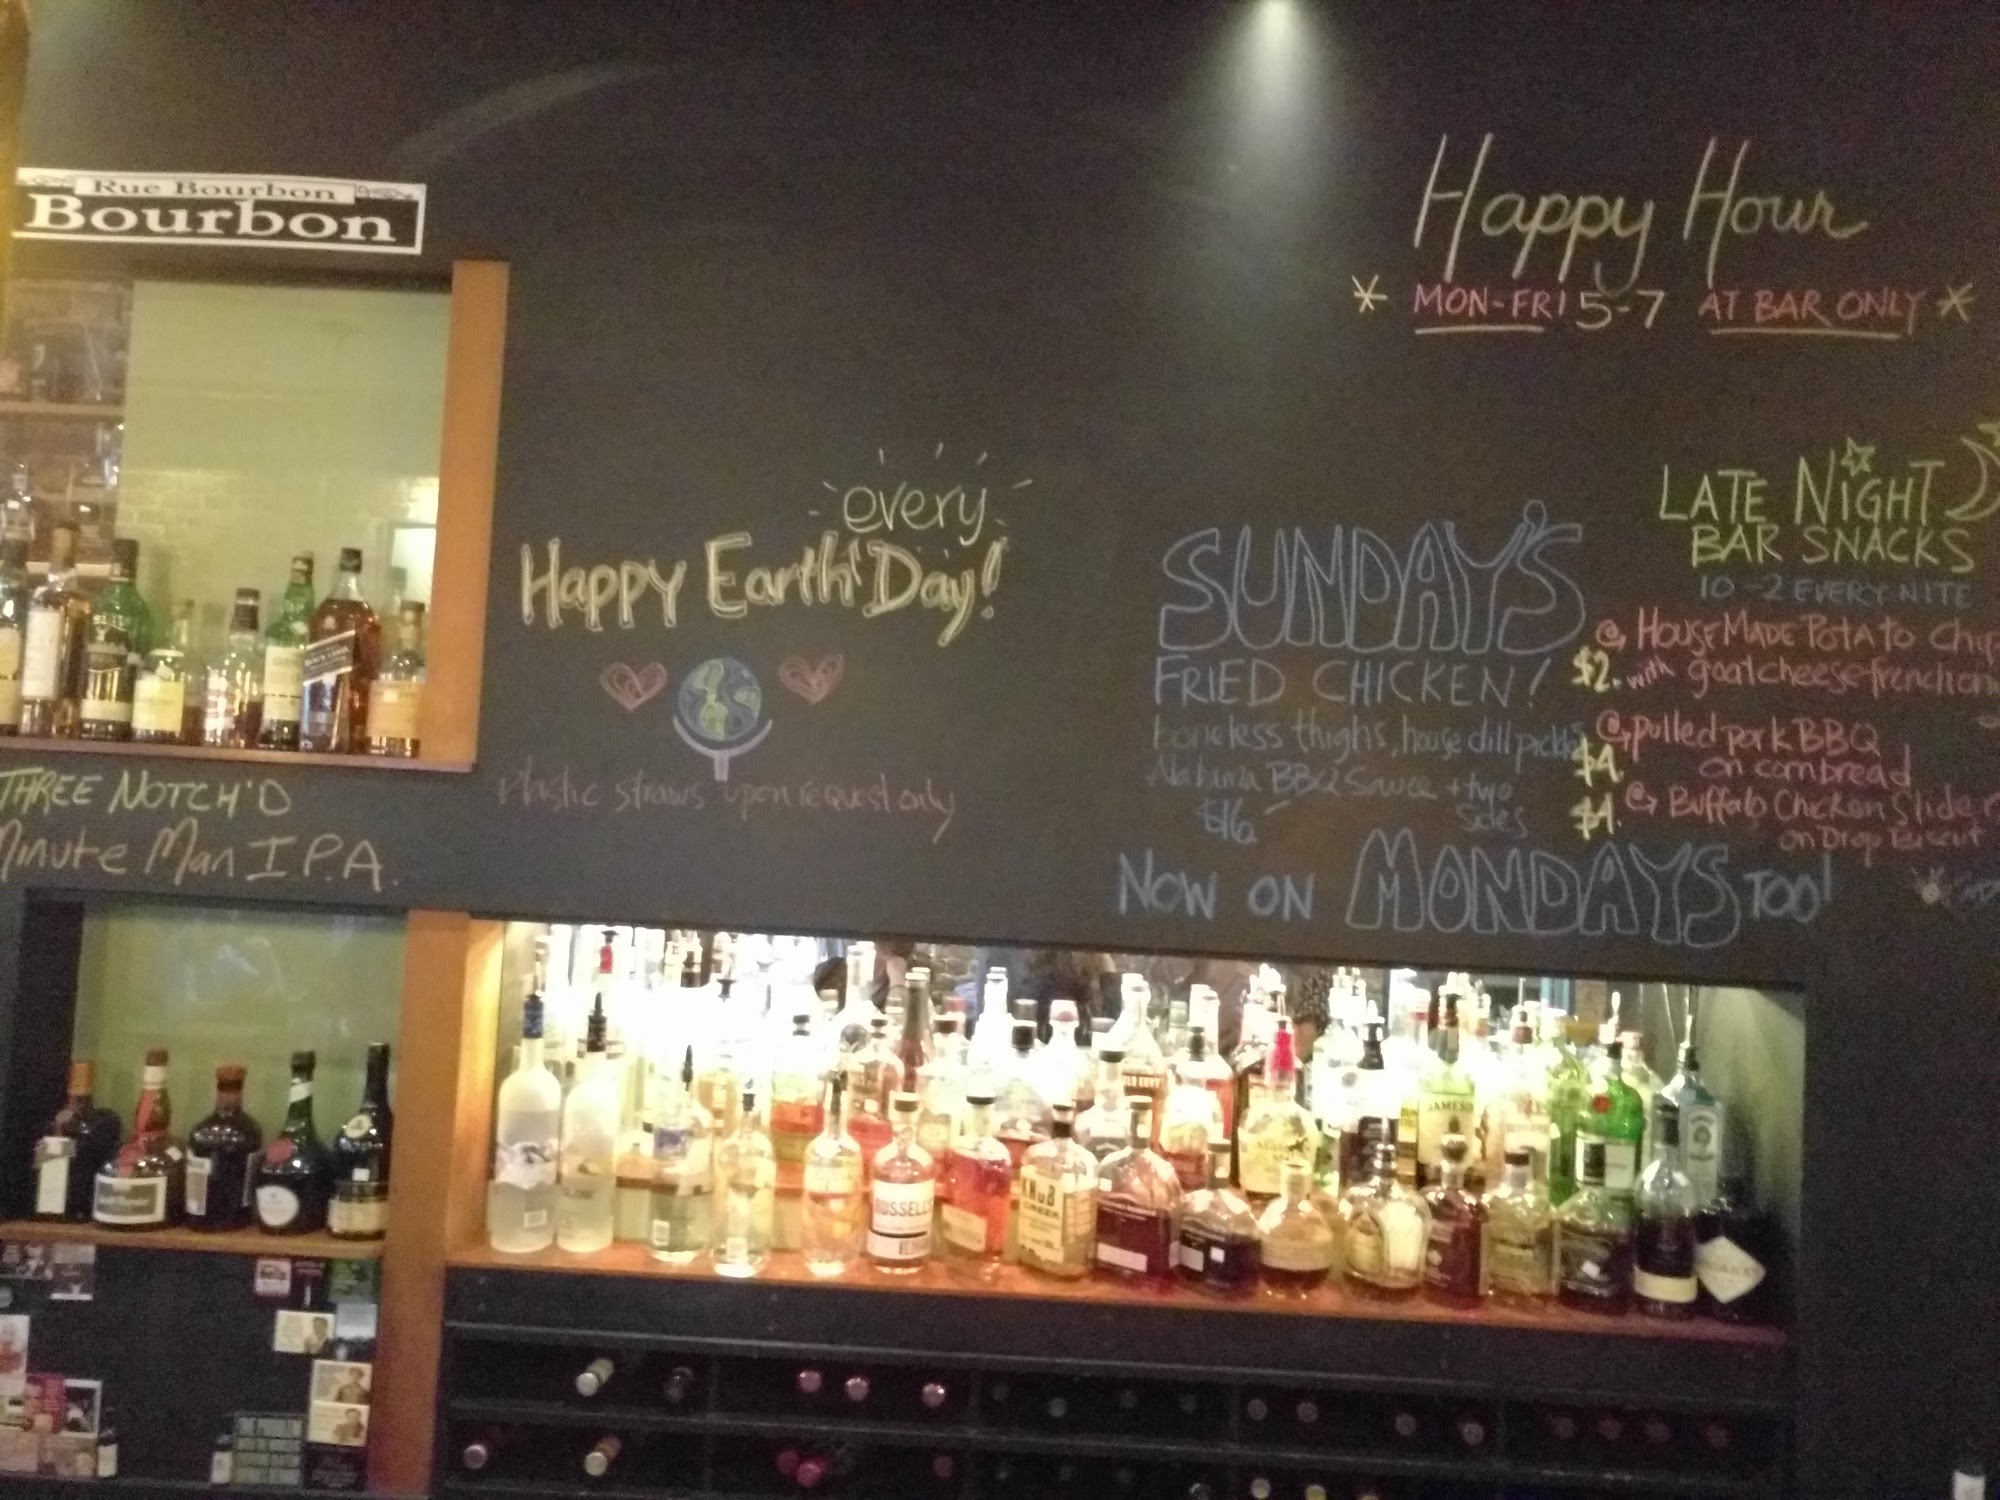 Rue Bourbon
Bourbon
THREE NOTCH'D
Minute Man I.P.A.
every
Happy Earth Day!
Plastic straws upon request only
Happy Hour
* MON-FRI 5-7 AT BAR ONLY *
SUNDAY'S
FRIED CHICKEN!
boneless thighs, house dill pickles
Alabama BBQ Sauce + two
$16 Sides
NOW ON MONDAYS TOO!
LATE NIGHT
BAR SNACKS
10-2 EVERY NITE
HOUSE MADE POTATO
$2. with goat cheese-french
pulled pork BBQ
$4. on cornbread
Buffalo Chicken
$4. on Drop Biscuit
KNOB
CREEK
RUSSELL'S
JAMESON